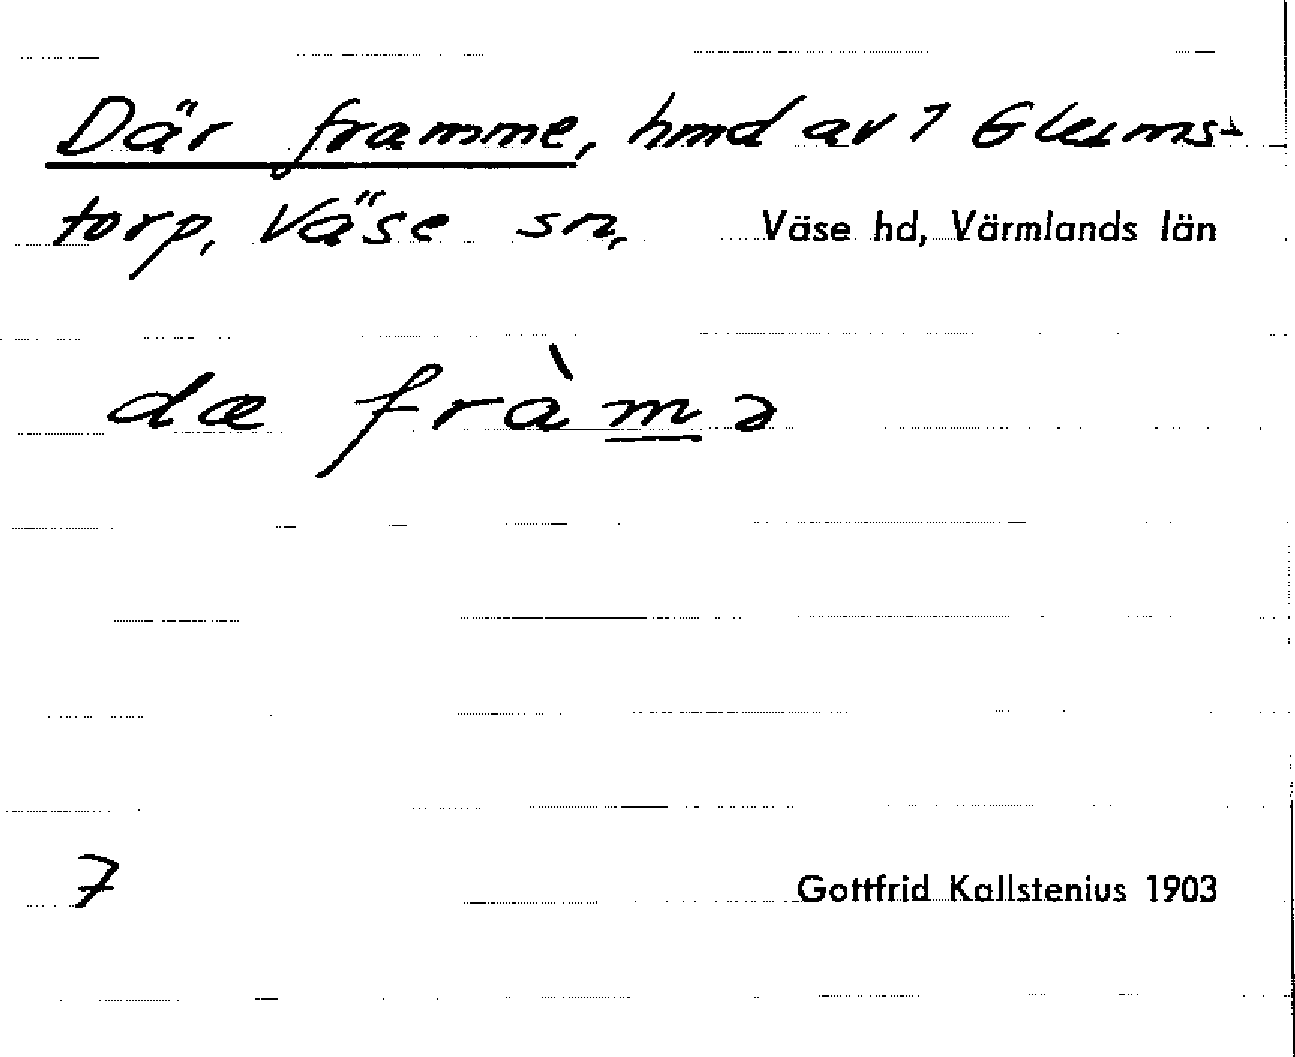 Där framme, hmd av 1 Glums-
torp, Väse sn, Väse hd, Värmlands län
dæ fràmə
7
Gottfrid Kallstenius 1903